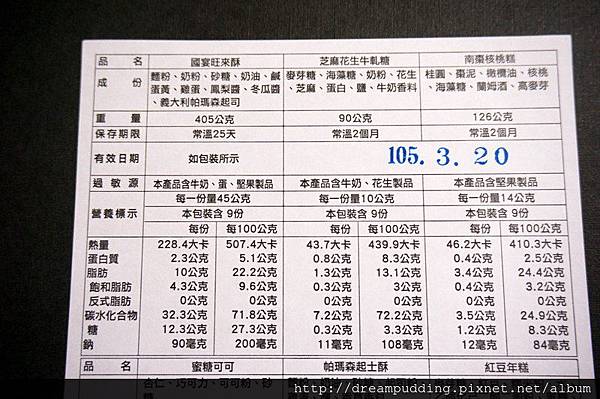 品 名 國宴旺來酥 芝麻花生牛軋糖 南棗核桃糕
成 份 麵粉、奶粉、砂糖、奶油、鹹蛋黃、雞蛋、鳳梨醬、冬瓜醬、義大利帕瑪森起司 麥芽糖、海藻糖、奶粉、花生、芝麻、蛋白、鹽、牛奶香料 桂圓、棗泥、橄欖油、核桃、海藻糖、蘭姆酒、高麥芽
重 量 405公克 90公克 126公克
保存期限 常溫25天 常溫2個月 常溫2個月
有效日期 如包裝所示 105. 3. 20
過敏源 本產品含牛奶、蛋、堅果製品 本產品含牛奶、花生製品 本產品含堅果製品
營養標示 每一份量45公克 每一份量10公克 每一份量14公克
本包裝含 9份 本包裝含 9份 本包裝含 9份
每份 每100公克 每份 每100公克 每份 每100公克
熱量 228.4大卡 507.4大卡 43.7大卡 439.9大卡 46.2大卡 410.3大卡
蛋白質 2.3公克 5.1公克 0.8公克 8.3公克 0.4公克 2.5公克
脂肪 10公克 22.2公克 1.3公克 13.1公克 3.4公克 24.4公克
飽和脂肪 4.3公克 9.6公克 0.3公克 3公克 0.4公克 3.2公克
反式脂肪 0公克 0公克 0公克 0公克 0公克 0公克
碳水化合物 32.3公克 71.8公克 7.2公克 72.2公克 3.5公克 24.9公克
糖 12.3公克 27.3公克 0.3公克 3.3公克 1.2公克 8.3公克
鈉 90毫克 200毫克 11毫克 108毫克 12毫克 84毫克
品 名 蜜糖可可 帕瑪森起士酥 紅豆年糕
杏仁、巧可力、可可粉、砂
http://dreampudding.pixnet.net/album